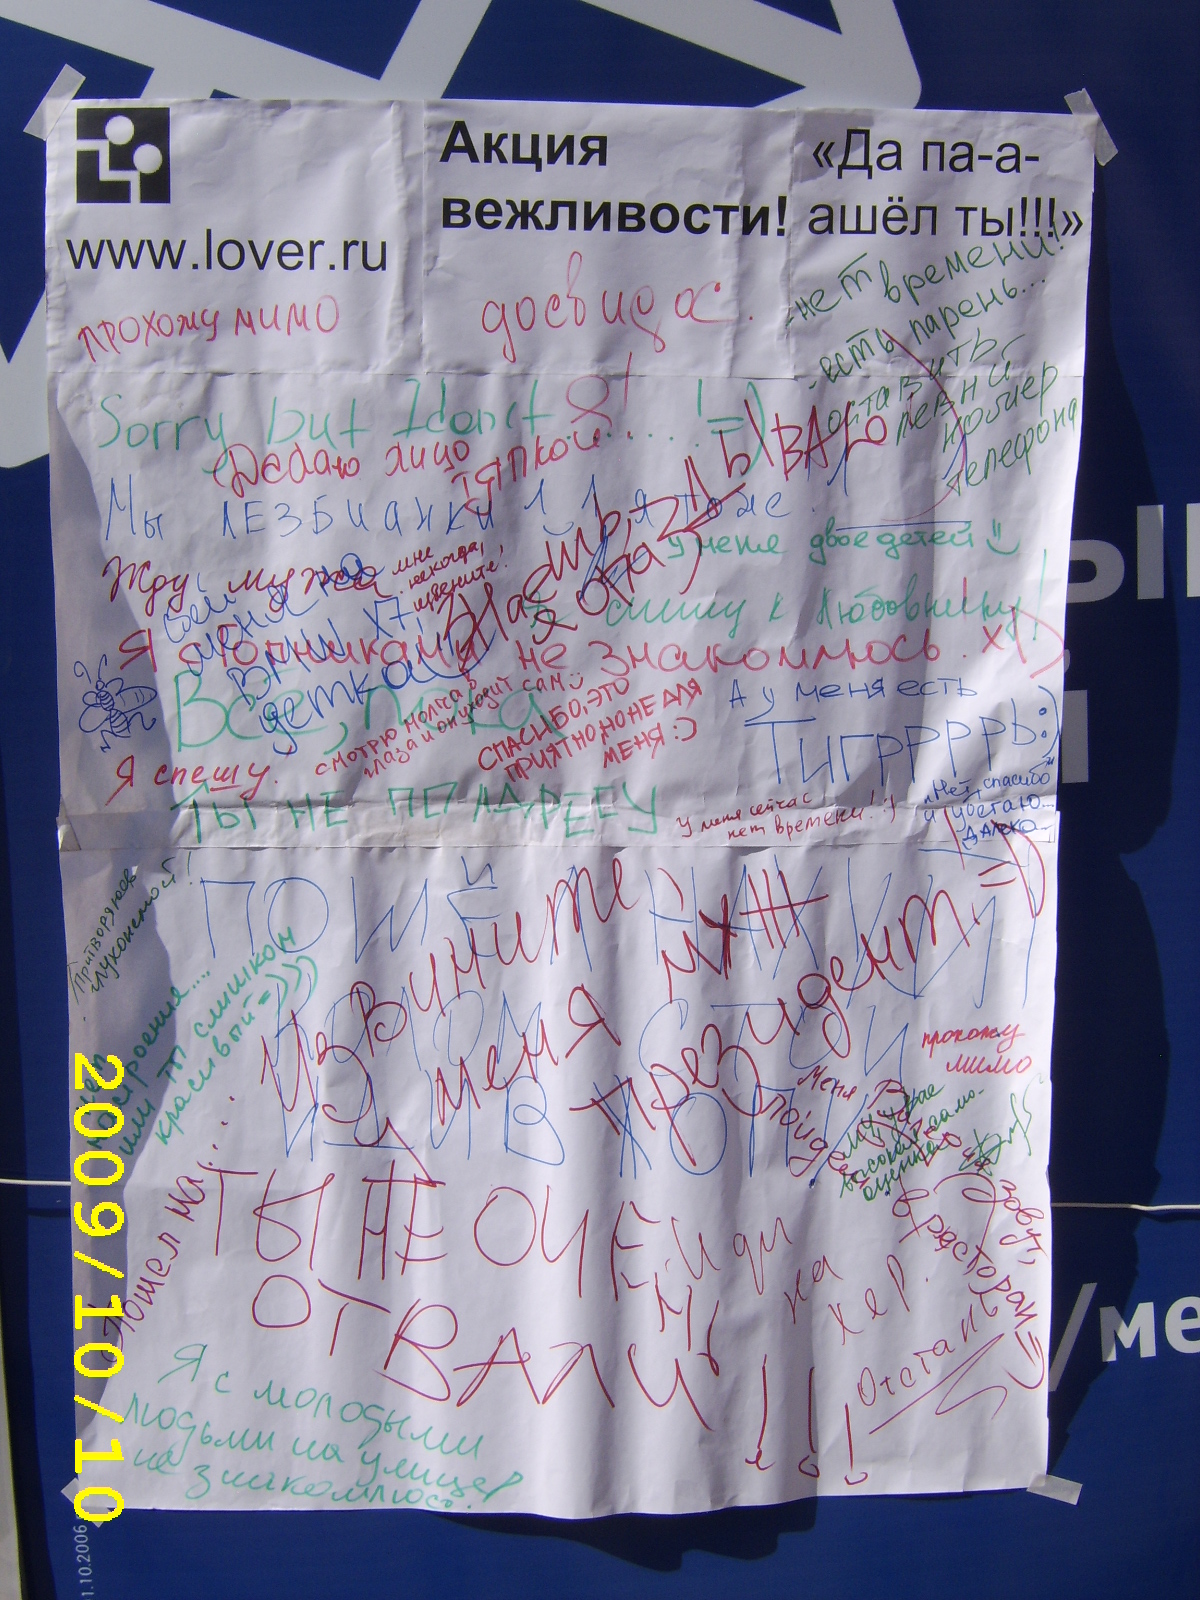 www.lover.ru
Акция
вежливости!
«Да па-а-
ашёл ты!!!»
прохожу мимо
досвидос.
-нет времени!
-есть парень...
оставить
левый
номер
телефона
Sorry but I don't
Делаю лицо
тяпкой
Мы лезбианки
я тоже
Настю
я обза
зываю
у меня двое детей
Жду мужа
мне некогда,
извините!
спешу к любовнику!
Я с гопниками не знакомлюсь. х)
детка
Все, пока
смотрю молча в
глаза и он уходит сам
СПАСИБО, ЭТО
ПРИЯТНО, НО НЕ ДЛЯ
МЕНЯ :)
А у меня есть
Тигррррь:)
Я спешу.
ТЫ НЕ ПО АДРЕСУ
У меня сейчас
нет времени! :)
"Нет, спасибо"
и убегаю...
далеко
Притворяюсь
глухонемой!
ПОШЁЛ НАХУЙ
Извините,
у меня муж
президент
ИДИ В ЖОПУ
настроения....
или ты слишком
красивый =)))
прохожу
мимо
меня
зовут
в ресторан
Пошел на...
ТЫ НЕ ОЧЕНЬ
ОТВАЛИ
Иди
на
хер.
Отстань
Я с молодыми
людьми на улицах
не знакомлюсь.
ы
/ме
1.10.2006
2009/10/10